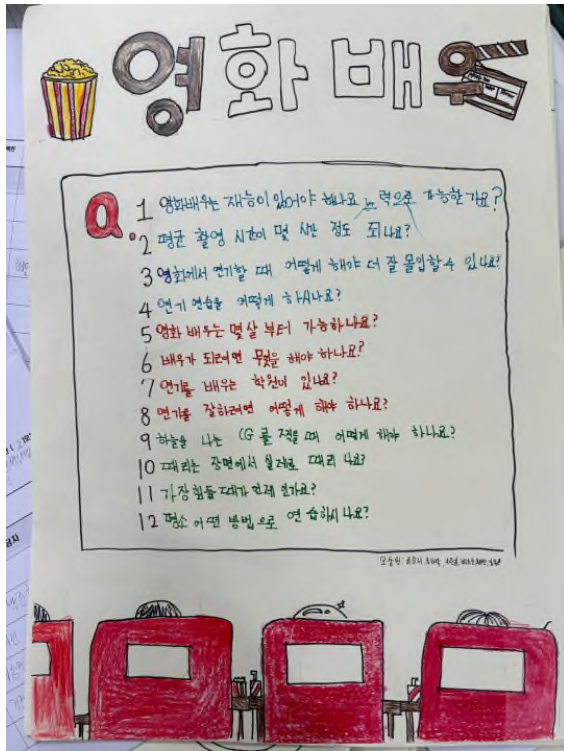 영화배우
Q.
1 영화배우는 재능이 있어야 하나요 노력으로 가능한가요?
2 평균 촬영 시간이 몇 시간 정도 되나요?
3 영화에서 연기할 때 어떻게 해야 더 잘 몰입할 수 있나요?
4 연기 연습을 어떻게 하시나요?
5 영화 배우는 몇살 부터 가능하나요?
6 배우가 되려면 무엇을 해야 하나요?
7 연기를 배우는 학원이 있나요?
8 연기를 잘하려면 어떻게 해야 하나요?
9 하늘을 나는 CG를 찍을 때 어떻게 해야 하나요?
10 때리는 장면에서 실제로 때리 나요?
11 가장 힘들 때가 언제 인가요?
12 평소 어떤 방법으로 연습하시 나요?